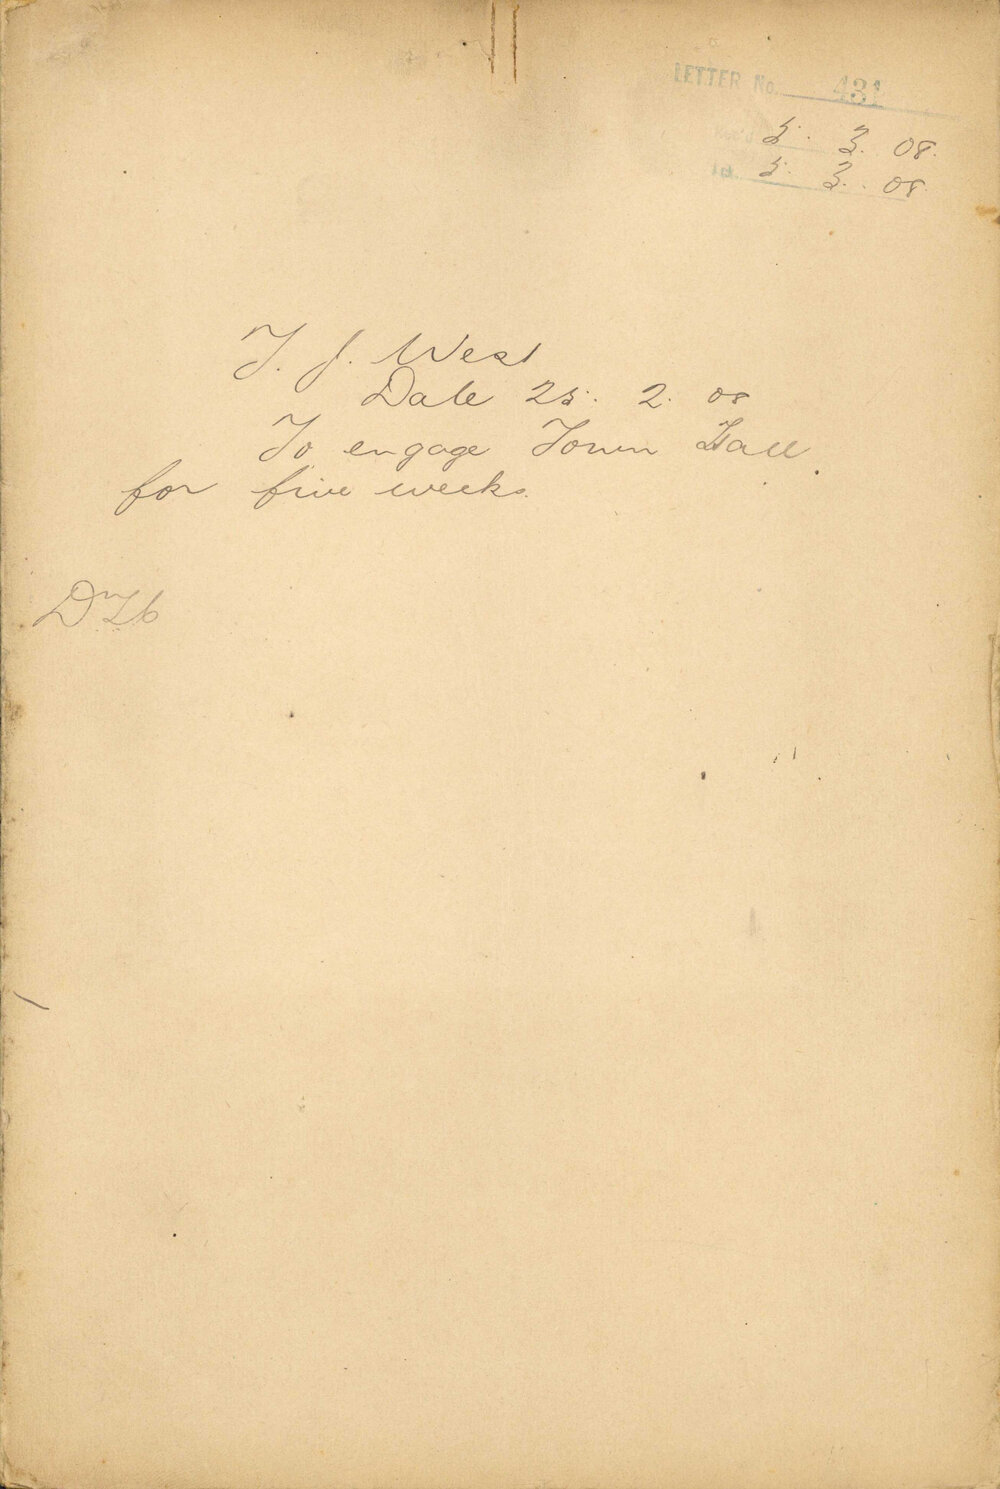 LETTER No. 431
Rec'd 5. 3. 08.
5. 3. 08
T. J. West
Date 25. 2. 08
To engage Town Hall
for five weeks.